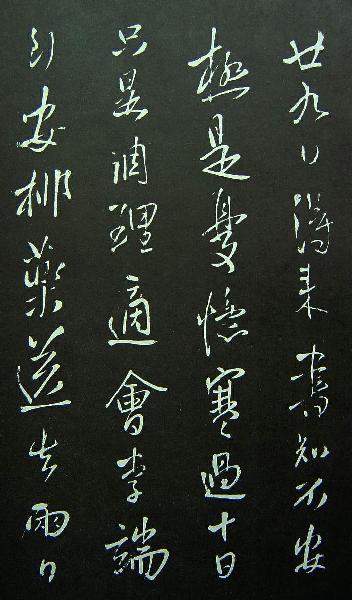 廿九日得来書知不安
極是憂憶寒過十日
只是調理適會李端
到安藥送去雨日